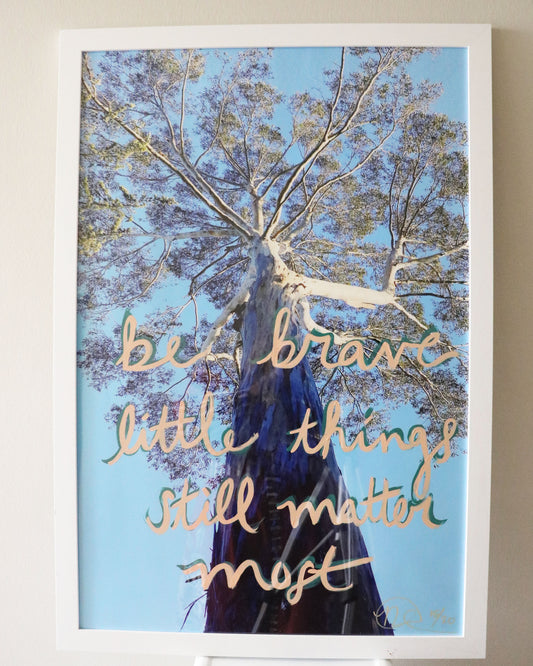 be brave
little things
still matter
most